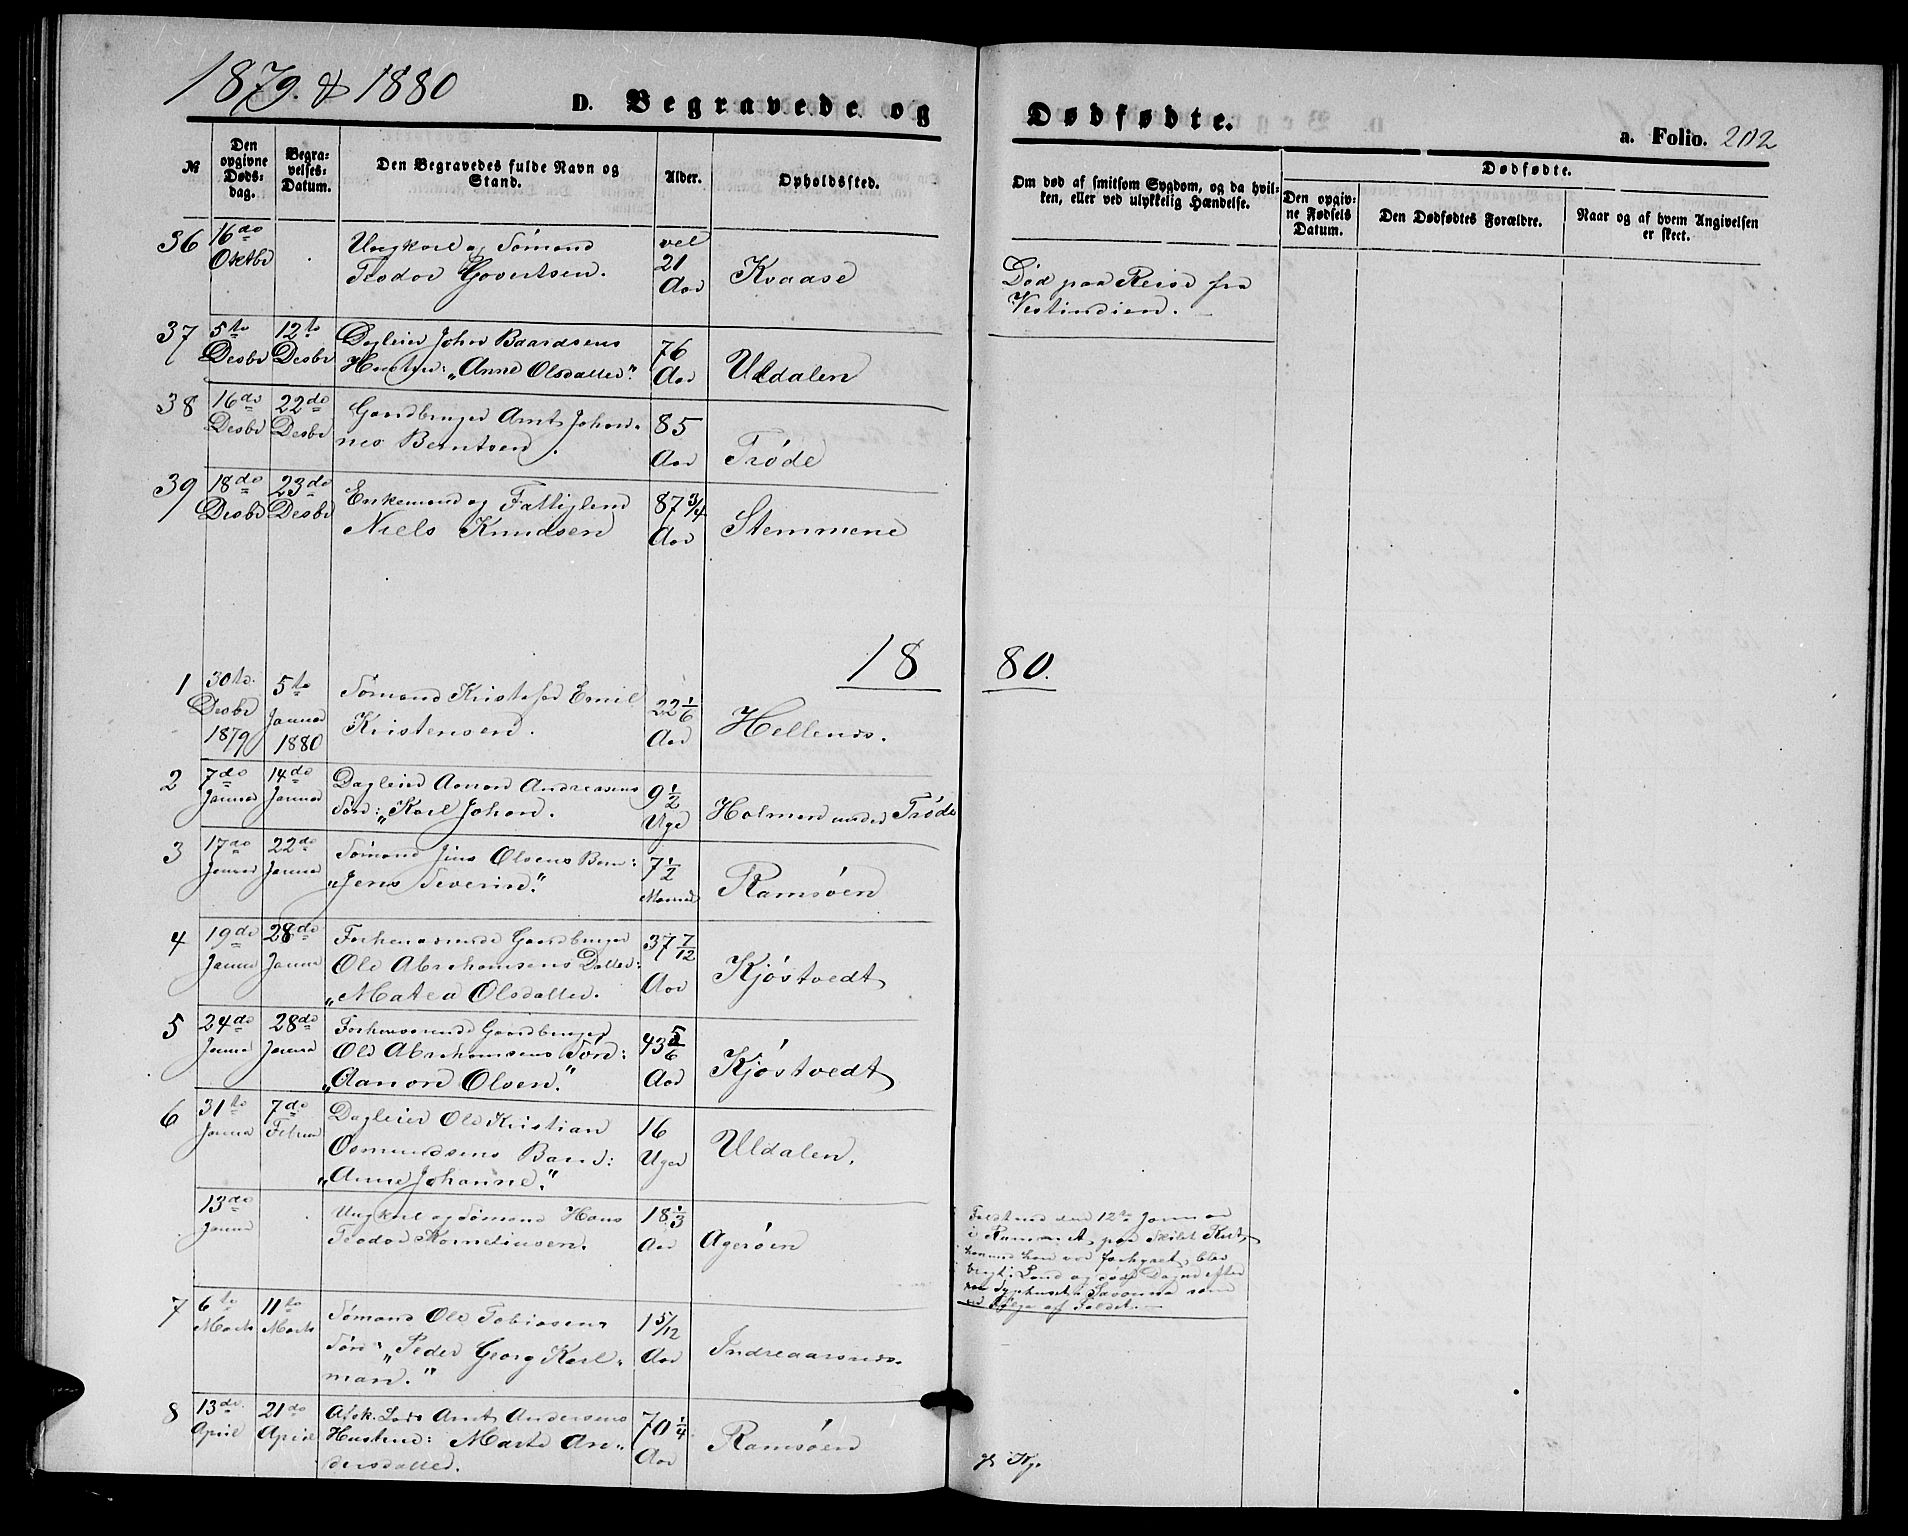 1879. & 1880
D. Begravede og Dødfødte.
a. Folio. 202
No
Den opgivne Døds-dag.
Begra-velses-Datum.
Den Begravedes fulde Navn og Stand.
Alder.
Opholdssted.
Om død af smitsom Sygdom, og da hvil-ken, eller ved ulykkelig Hændelse.
Dødfødte.
Den opgiv-ne Fødsels Datum.
Den Dødfødtes Forældre.
Naar og af hvem Angivelsen er skeet.
36 16de Oktbr . Ungkarl og Sømand vel
Teodor Govertsen. 21 Aar Kvaase
Død paa Reise fra
Vestindien.
37 5te Desbr 12te Desbr Dagleier John Baardsens
Hustru: „Anne Olsdatter". 76 Aar Uldalen
38 16de Desbr 22de Desbr Gaardbruger Arnt Johan-
nes Berntsen. 85 Aar Trøde
39 18de Desbr 23de Desbr Enkemand og Fattiglem
Niels Knudsen 87 3/4 Aar Stemmene
1880.
1 30te Desbr 1879 5te Januar 1880 Sømand Kristofer Emil
Kristensen. 22 1/6 Aar Hellenes.
2 7de Januar 14de Januar Dagleier Aanon Andreasens
Søn: „Karl Johan. 9 1/2 Uge Holmen under Trøde
3 17de Januar 22de Januar Sømand Jens Olsens Barn:
„Jens Severin." 7 1/2 Maaned Ramsøen
4 19de Januar 28de Januar Forhenværende Gaardbruger
Ole Abrahamsens Datter:
„Matea Olsdatter. 37 7/12 Aar Kjøstvedt
5 24de Januar 28de Januar Forhenværende Gaardbruger
Ole Abrahamsens Søn:
„Aanon Olsen." 43 5/6 Aar Kjøstvedt
6 31te Januar 7de Februar Dagleier Ole Kristian
Osmundsens Barn:
„Anne Johanne." 16 Uger Uldalen.
13de Januar . Ungkarl og Sømand Hans
Teodor Korneliussen. 18 1/3 Aar Agerøen
Faldt ned den 12te Januar
i Rummet, paa Skibet
hvormed han var forhyret, blev
bragt i Land og døde Dagen efter
paa Syghuset i Savanna som
en Følge af Faldet.
7 6te Marts 11te Marts Sømand Ole Tobiasens
Søn: „Peder Georg Karl-
man." 1 5/12 Aar Indreaarsnes.
8 13de April 21de April Afsk. Lods Arnt Andersens
Hustru: Marte An-
dersdatter. 70 1/4 Aar Ramsøen